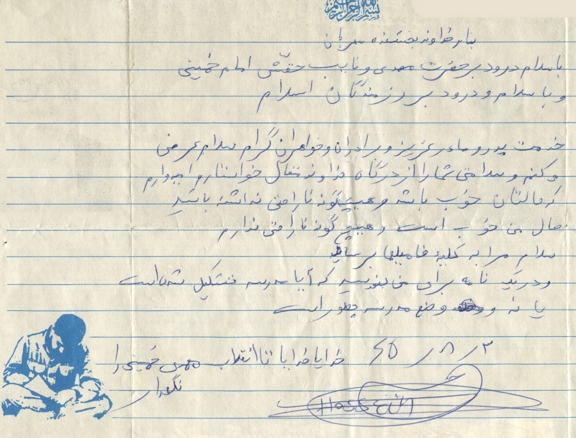 بنام خداوند بخشنده مهربان
با سلام و درود بر حضرت مهدی و نایب حقش امام خمینی
و با سلام و درود بر رزمندگان اسلام
خدمت پدر و مادر عزیز و برادران و خواهران گرام سلام عرض
میکنم و سلامتی شما را از درگاه خداوند متعال خواستارم و امیدوارم
که حالتان خوب باشد و هیچگونه ناراحتی نداشته باشید
حال من خوب است و هیچ گونه ناراحتی ندارم
سلام مرا به کلیه فامیلها برسانید
و در یک نامه برای من بنویسید که آیا مدرسه تشکیل شده است
یا نه و وضع مدرسه چطور است
65/8/2 خدایا خدایا تا انقلاب مهدی خمینی را
نگهدار
Hossein